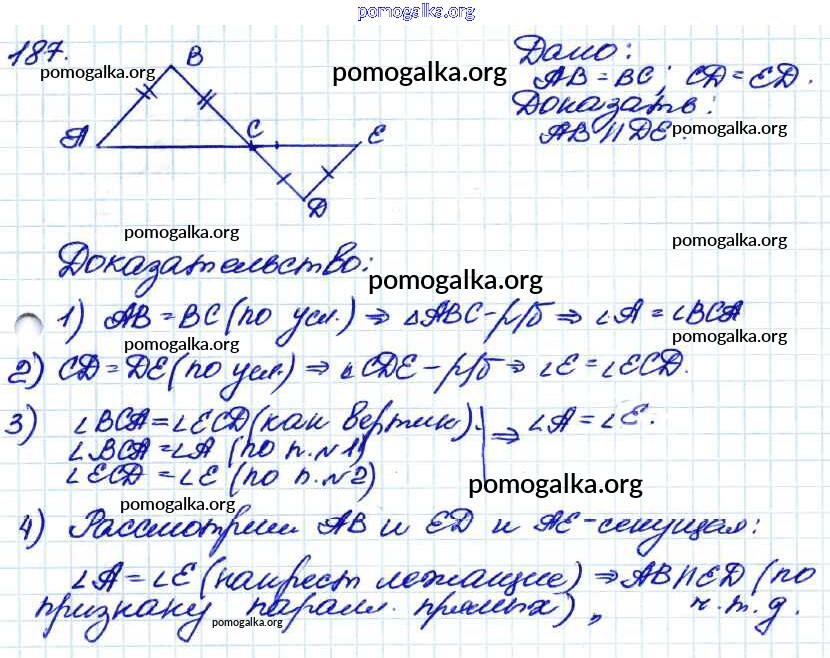 pomogalka.org
187.
pomogalka.org
B
A
C
E
D
pomogalka.org
Дано:
AB = BC; CD = ED.
Доказать:
AB || DE.
pomogalka.org
pomogalka.org
pomogalka.org
Доказательство:
pomogalka.org
1) AB = BC (по усл.) ⇒ △ABC - р/б ⇒ ∠A = ∠BCA
pomogalka.org
pomogalka.org
2) CD = DE (по усл.) ⇒ △CDE - р/б ⇒ ∠E = ∠ECD.
3) ∠BCA = ∠ECD (как вертик).
∠BCA = ∠A (по п. №1)
∠ECD = ∠E (по п. №2)
⇒ ∠A = ∠E.
pomogalka.org
pomogalka.org
4) Рассмотрим AB и ED и AE - секущая:
∠A = ∠E (накрест лежащие) ⇒ AB || ED (по
признаку паралл. прямых), ч.т.д.
pomogalka.org